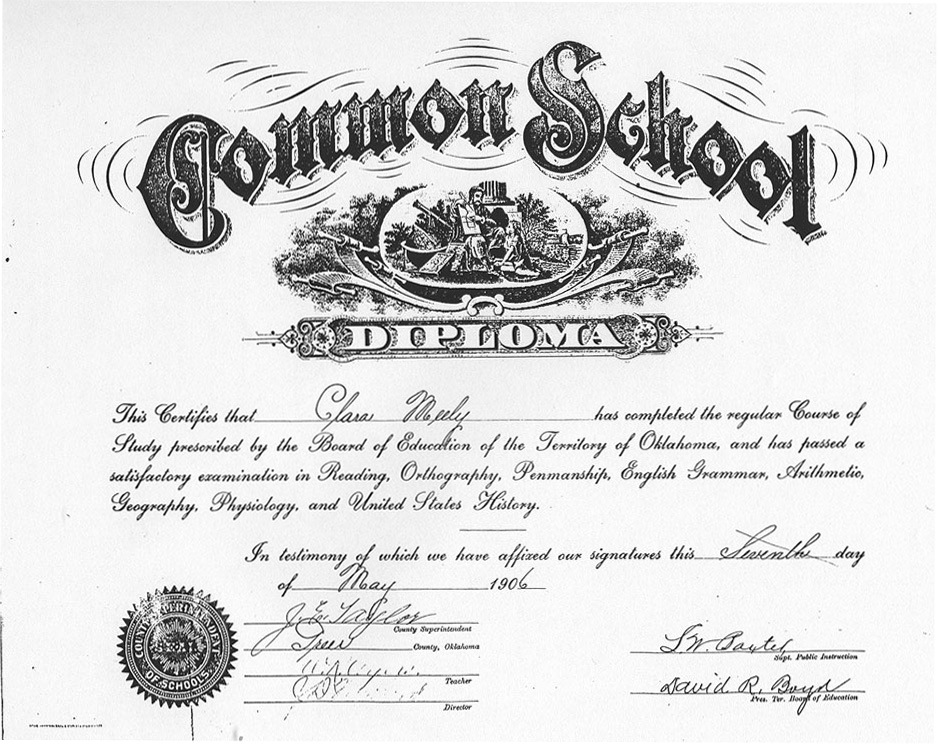 Common School
DIPLOMA
This Certifies that Clara Meely has completed the regular Course of
Study prescribed by the Board of Education of the Territory of Oklahoma, and has passed a
satisfactory examination in Reading, Orthography, Penmanship, English Grammar, Arithmetic,
Geography, Physiology, and United States History.
In testimony of which we have affixed our signatures this Seventh day
of May 1906
J. E. Taylor
County Superintendent
Greer County, Oklahoma
Teacher
Director
COUNTY SUPERINTENDENT
SEAL
OF SCHOOLS
L. W. Baxter
Supt. Public Instruction
David R. Boyd
Pres. Ter. Board of Education